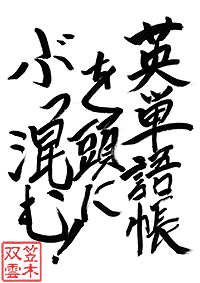 英単語帳
を頭に
ぶっ混む!
笠木
双雲